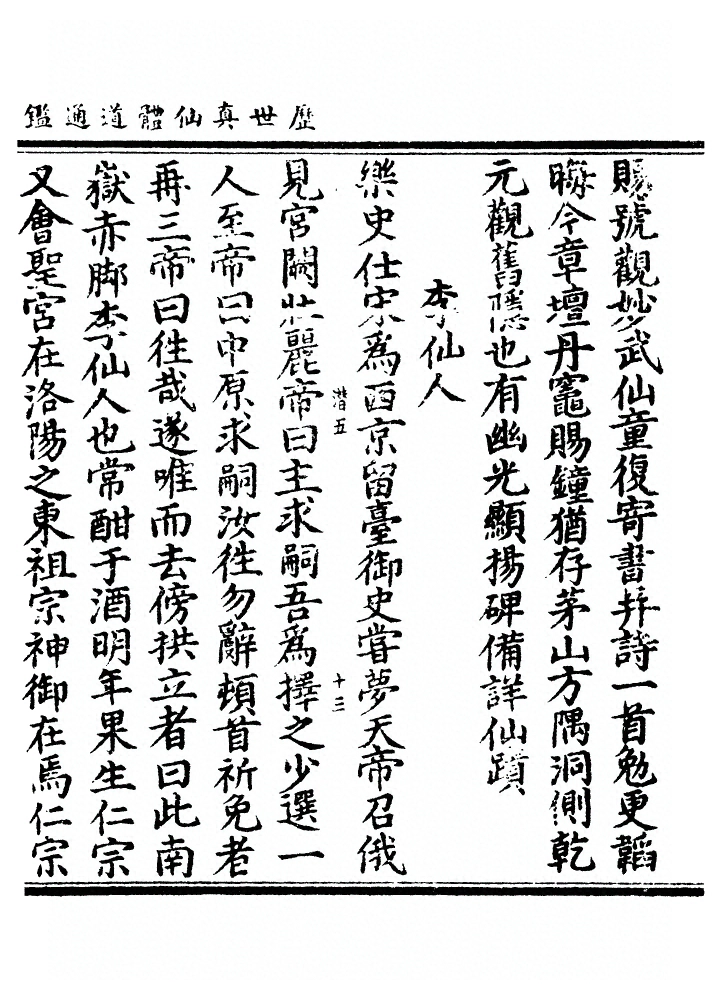 歷世真仙體道通鑑
賜號觀妙武仙童復寄書并詩一首勉更韜
晦今章壇丹竈賜鐘猶存茅山方隅洞側乾
元觀舊隱也有幽光顯揚碑備詳仙蹟
李仙人
樂史仕宋為西京留臺御史嘗夢天帝召俄
潛五
十三
見宮闕壯麗帝曰主求嗣吾為擇之少選一
人至帝曰中原求嗣汝徃勿辭頓首祈免者
再三帝曰徃哉遂唯而去傍拱立者曰此南
嶽赤脚李仙人也常酣于酒明年果生仁宗
又會聖宮在洛陽之東祖宗神御在焉仁宗